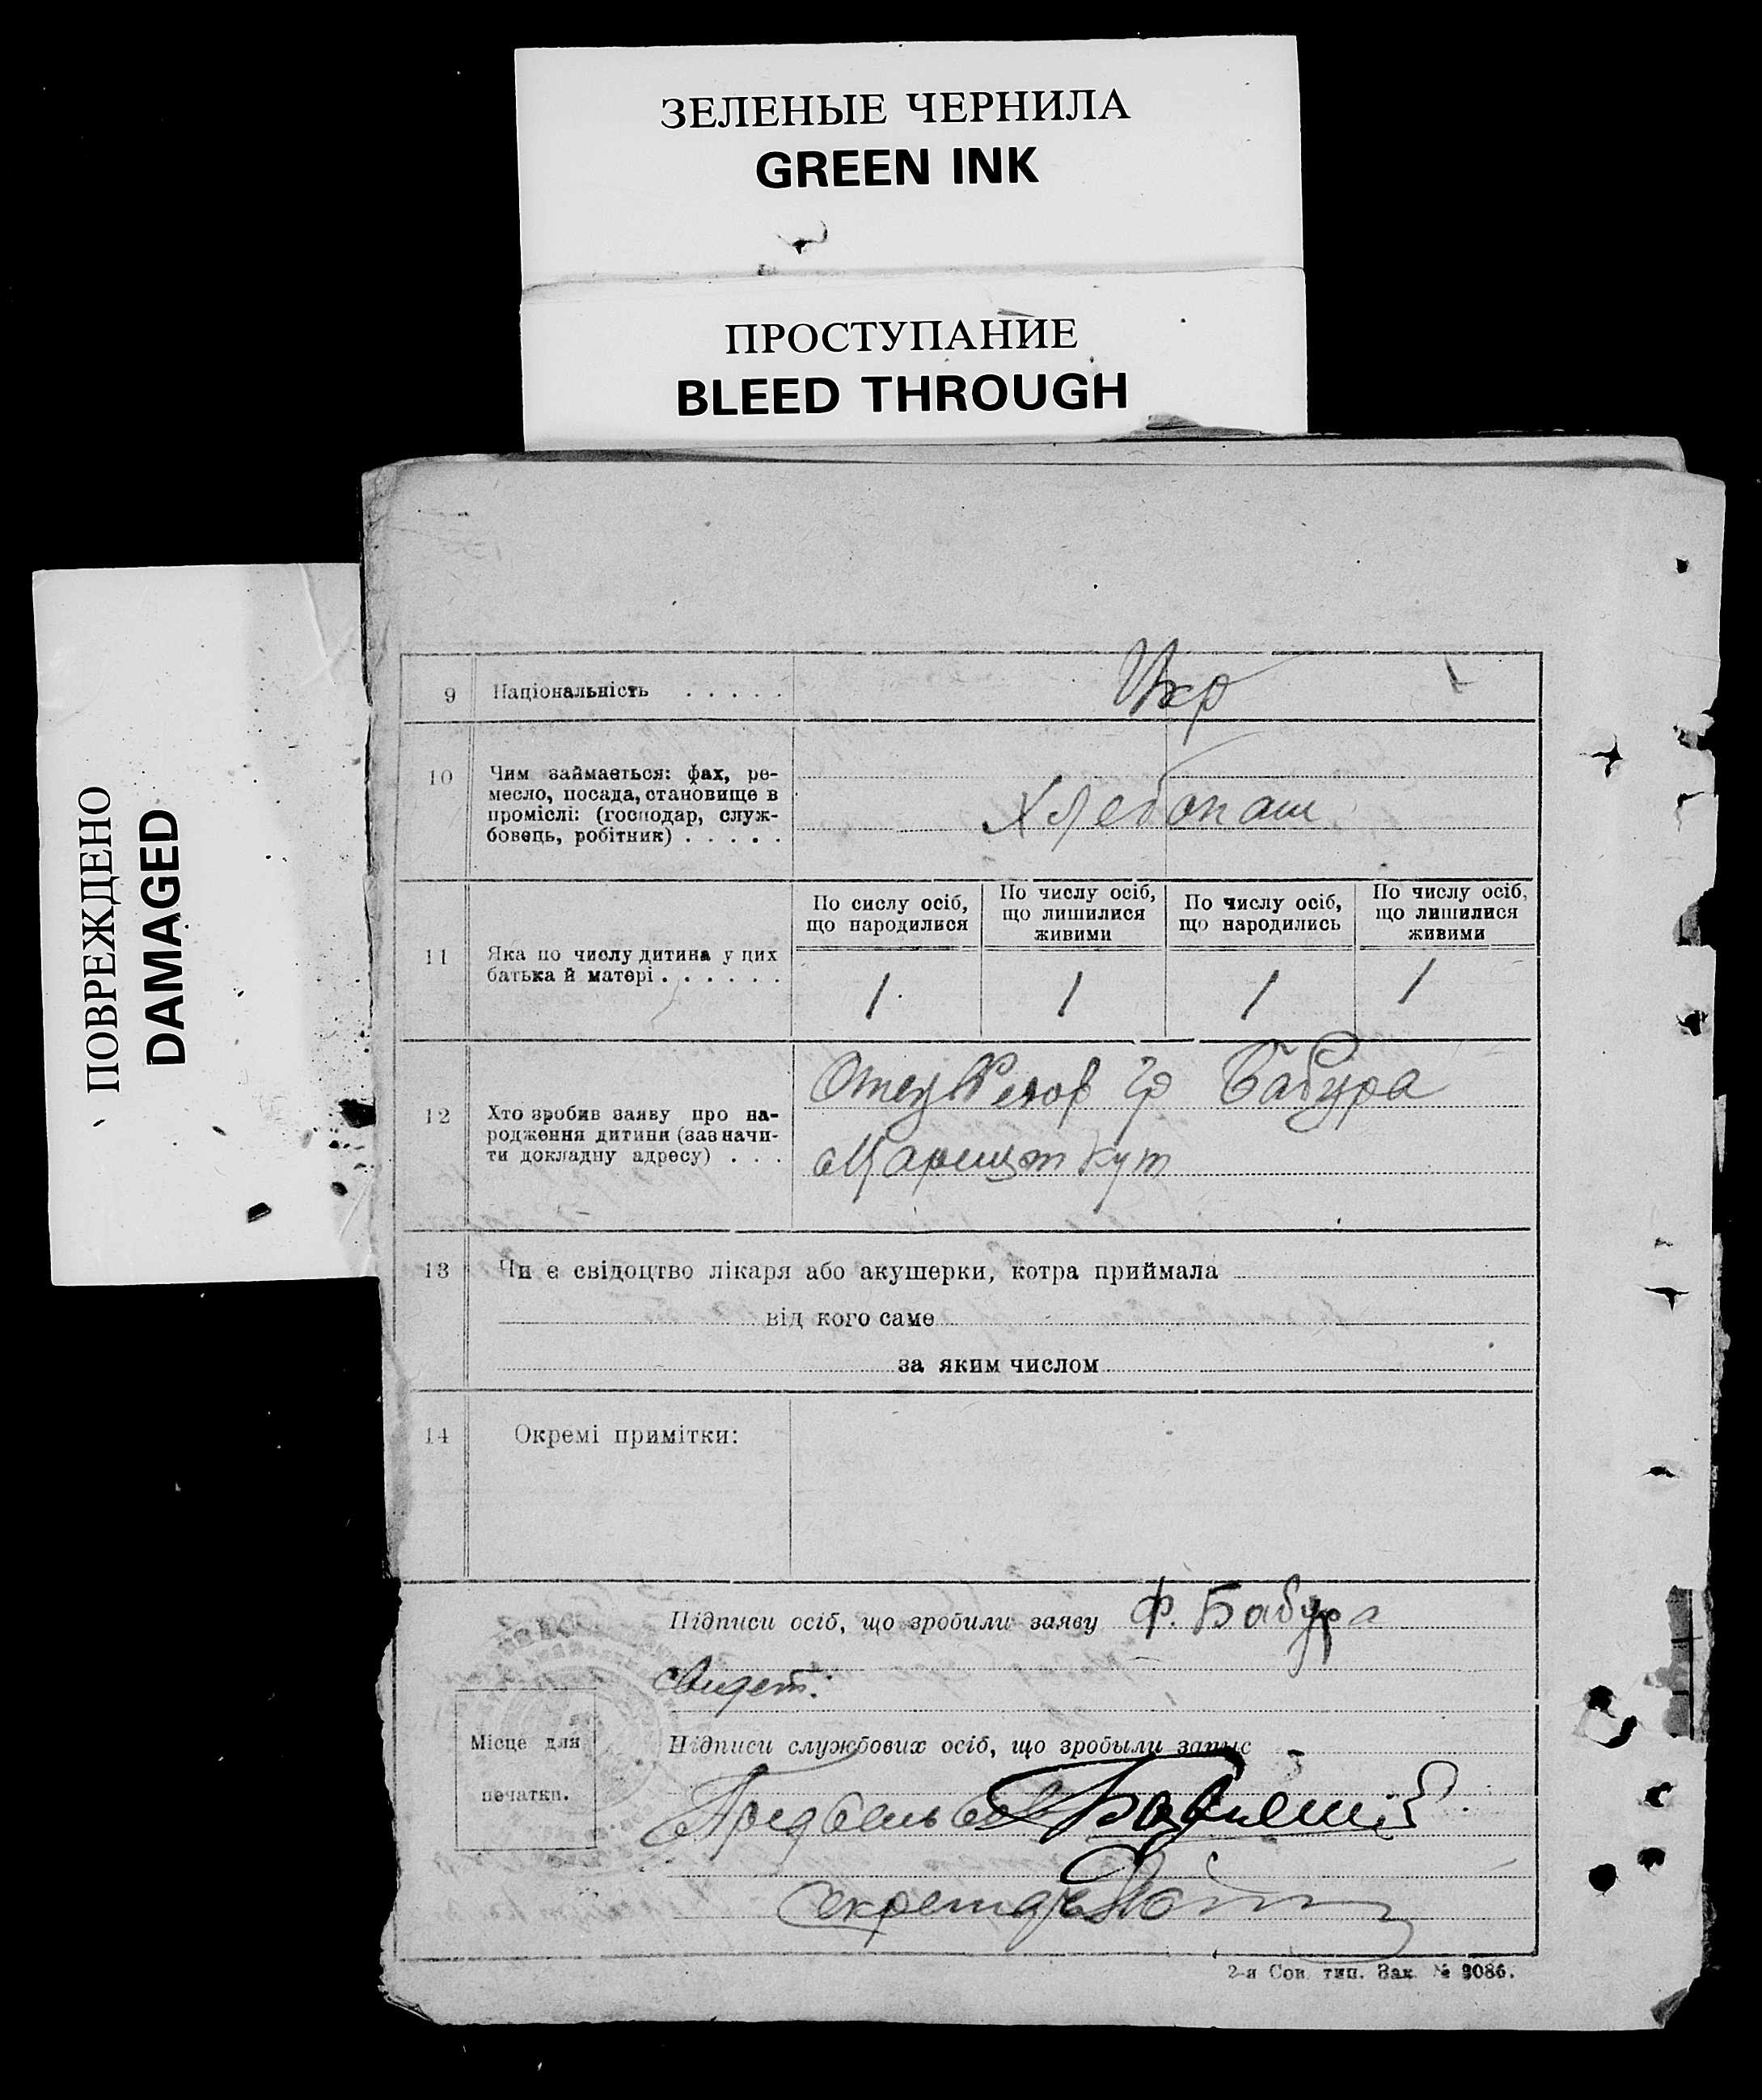 ЗЕЛЕНЫЕ ЧЕРНИЛА
GREEN INK
ПРОСТУПАНИЕ
BLEED THROUGH
ПОВРЕЖДЕНО
DAMAGED
9 Національність . . . . . Укр
10 Чим займається: фах, ре-
месло, посада, становище в
проміслі: (господар, служ-
бовець, робітник) . . . . .
Хлебопаш
11 Яка по числу дитина у цих
батька й матері . . . . . .
По сислу осіб,
що народилися
По числу осіб,
що лишилися
живими
По числу осіб,
що народились
По числу осіб,
що лишилися
живими
1 1 1 1
12 Хто зробив заяву про на-
родження дитини (зазначи-
ти докладну адресу) . . .
Отец гр Бабура
Царицын Кут
13 Чи є свідоцтво лікаря або акушерки, котра приймала
від кого саме
за яким числом
14 Окремі примітки:
Підписи осіб, що зробили заяву Ф. Бабура
свидет:
Місце для
печатки.
Підписи службових осіб, що зробыли запис
Пред
Секретарь
2-я Сов. тип. Зак. № 9086.